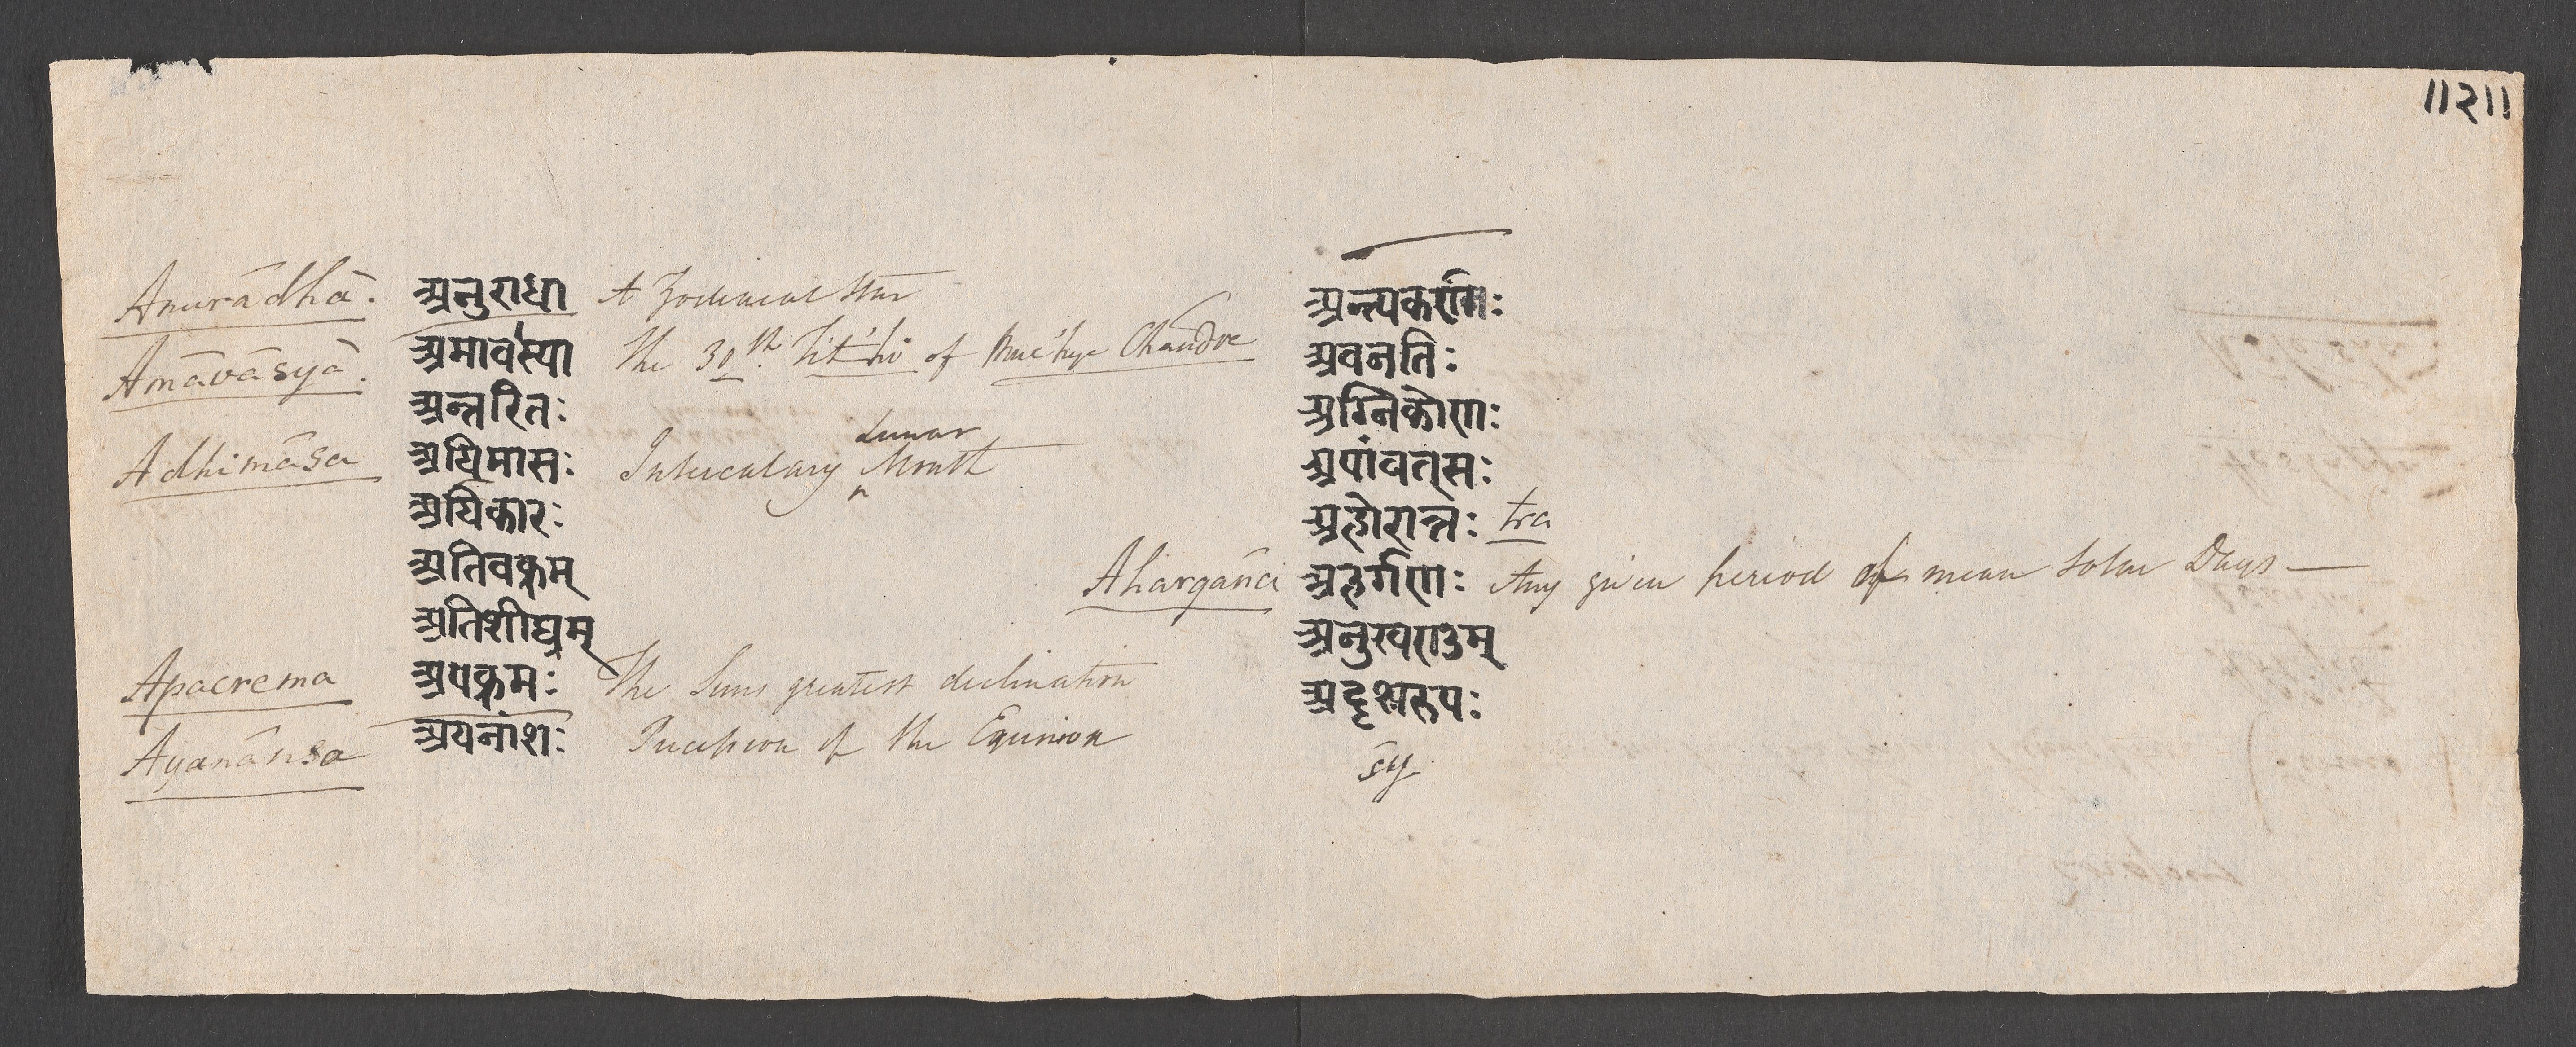 ॥२॥
Anurādhā. अनुराधा A Zodiacal Star
Amāvāsyā. अमावास्या The 30th. Tit'hi of Muc'hya Chandra
अन्तरितः
Adhimāsa अधिमासः Intercalary Lunar Month
अधिकारः
अतिवक्रम्
अतिशीघ्रम्
Apacrema अपक्रमः The Suns greatest declination
Ayanānsa अयनांशः Precession of the Equinox
अन्त्यकर्णः
अवनति:
अग्निकोणः
अपांवत्सः
अहोरात्रः tra
Ahargaṅa अहर्गणः Any given period of mean Solar Days —
अदृश्यरूपः
sy